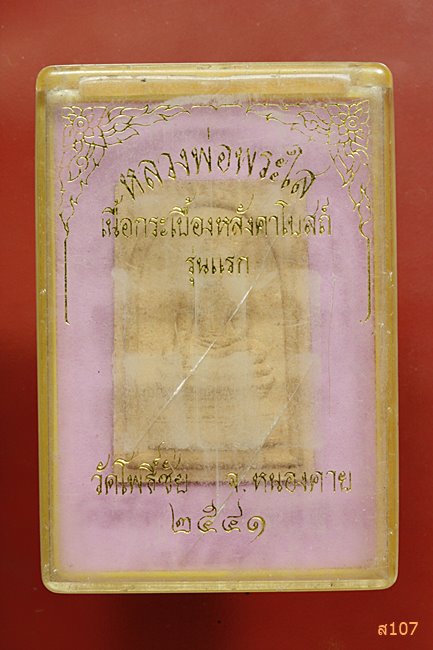 หลวงพ่อพระใส
เนื้อกระเบื้องหลังคาโบสถ์
รุ่นแรก
วัดโพธิ์ชัย จ.หนองคาย
๒๕๔๑
ส107